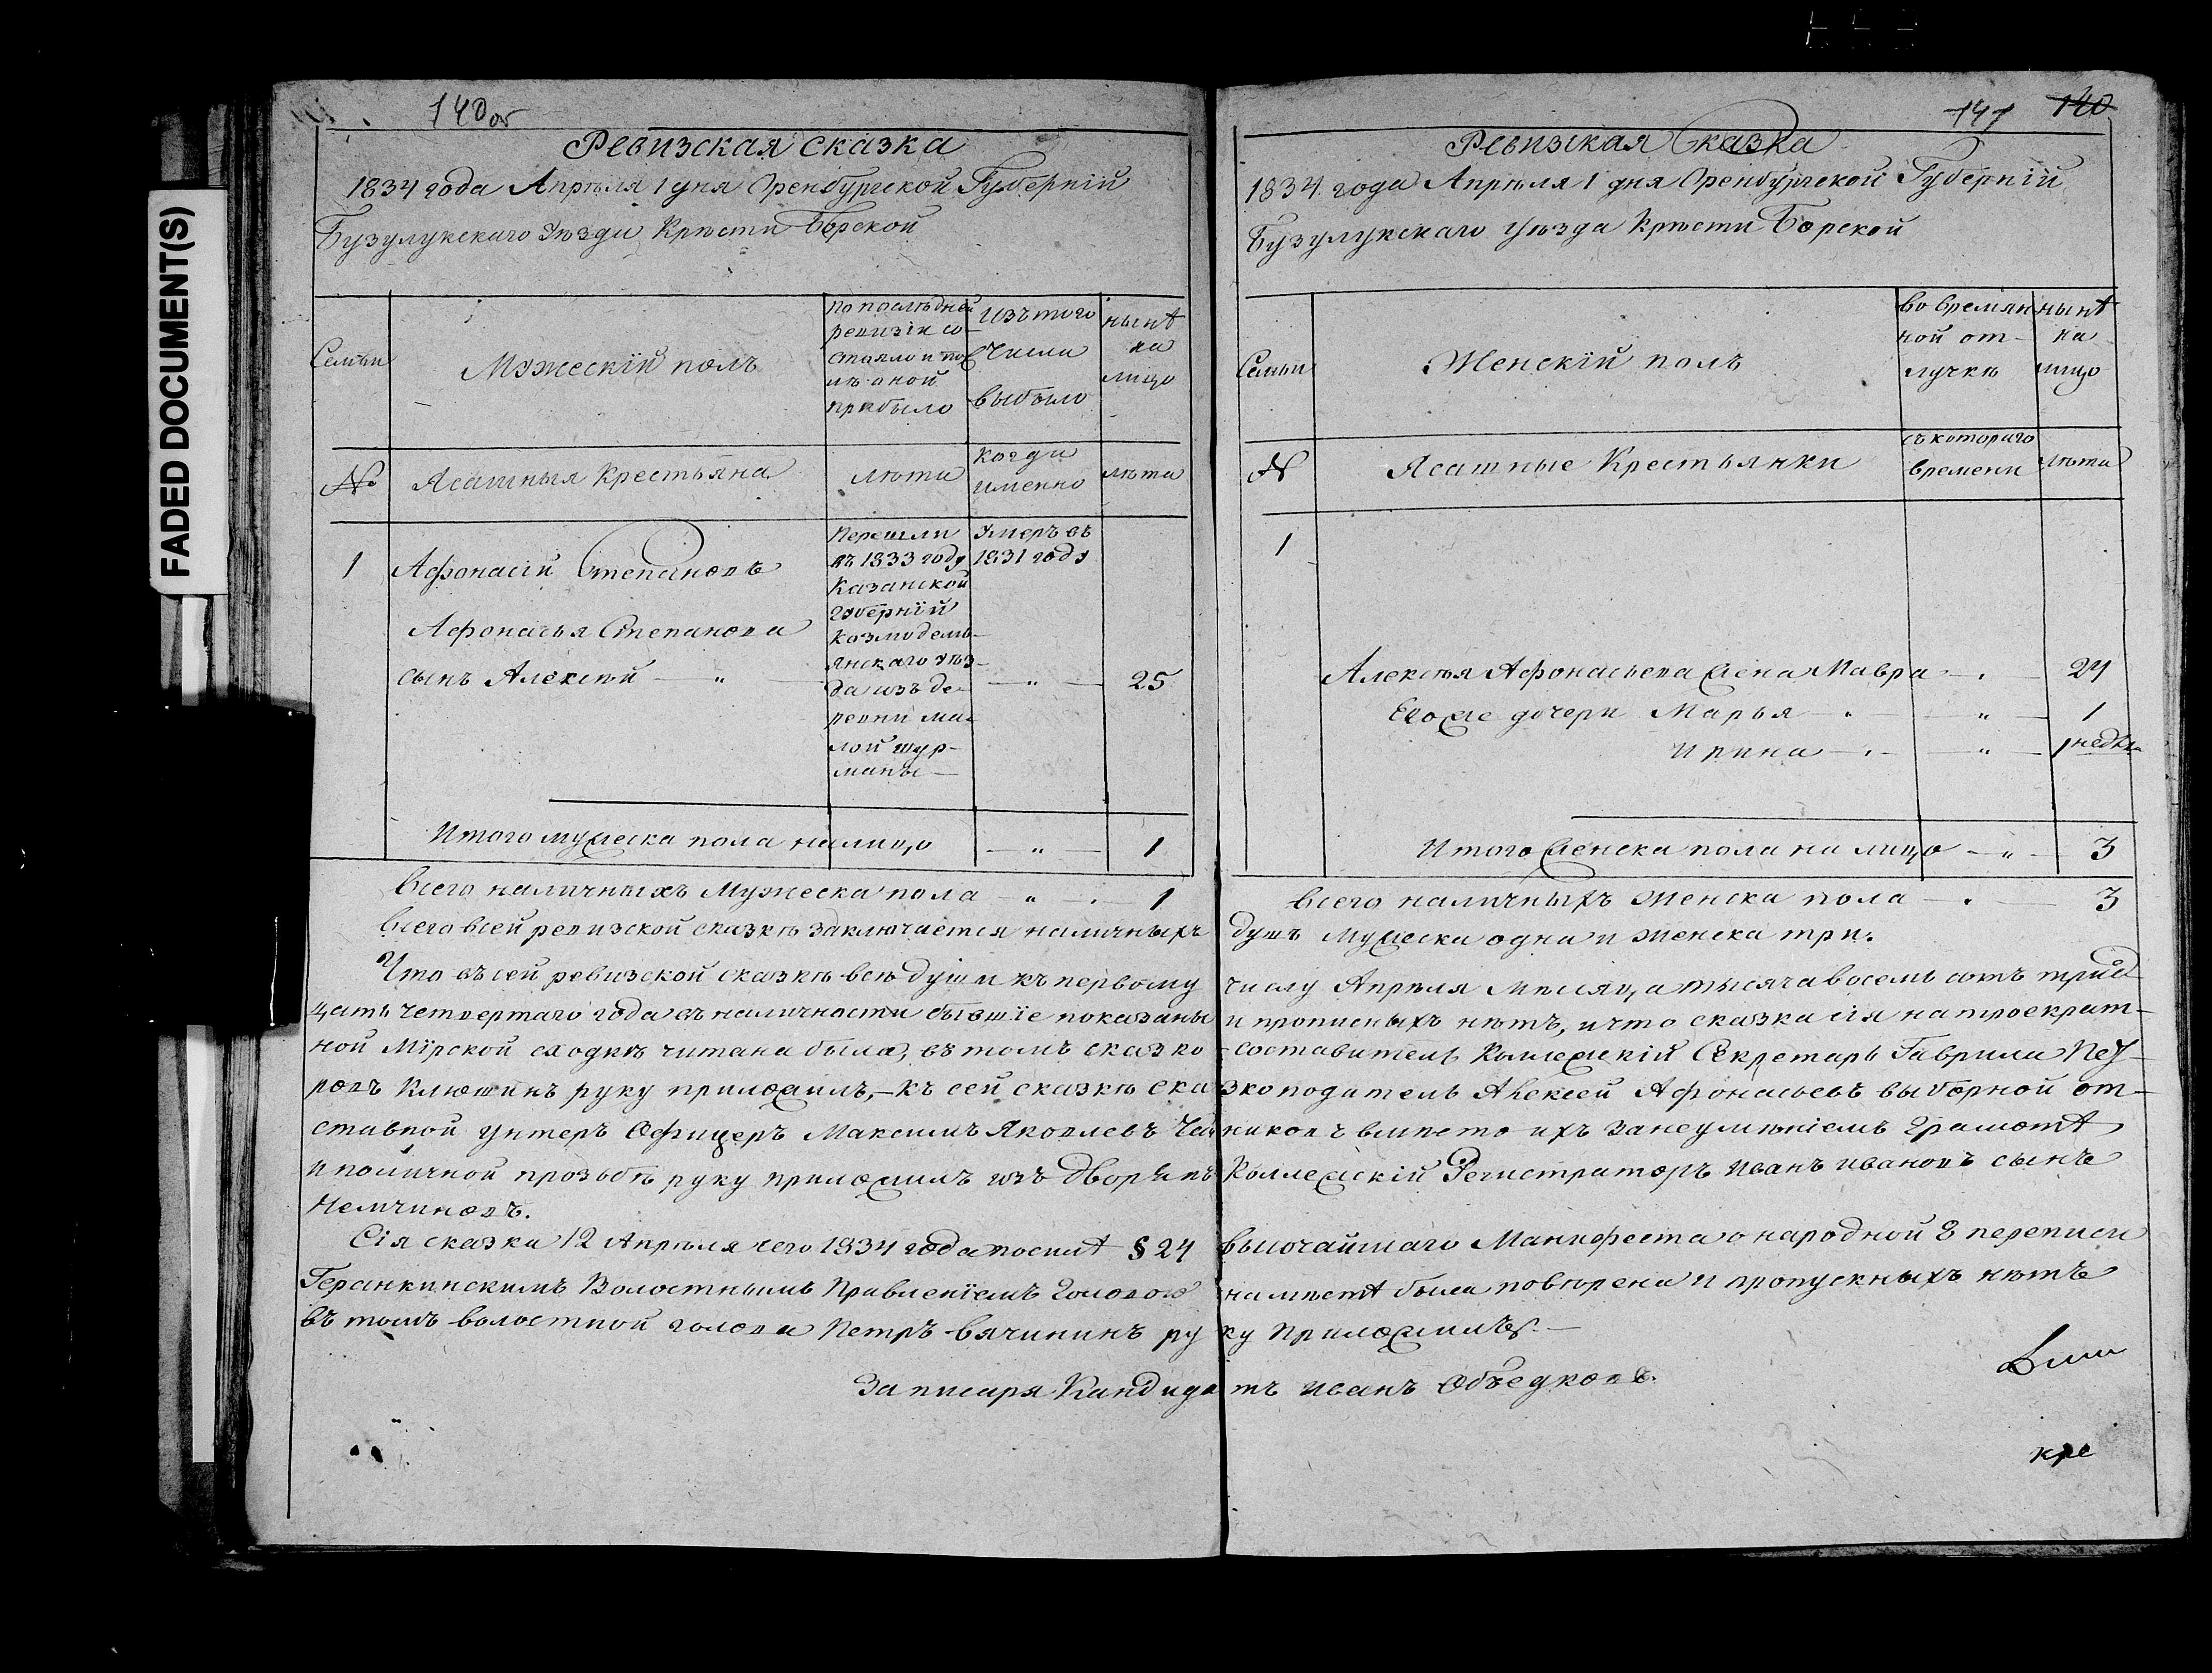 FADED DOCUMENT(S)
140 об
Ревизская сказка
1834 года Апрѣля 1 дня Оренбургской Губерніи
Бузулукскаго Уѣзда Крѣсти Борской
Семьи
Мужескій полъ
по послѣдней ревизіи состояло и послѣ оной прибыло
изъ того числа выбыло
нынѣ на лицо
№
Ясашныя Крестьяна
лѣта
когда именно
лѣта
1
Афонасій Степановъ
Перешли въ 1833 году Казанской губерніи Козмодемьянскаго уѣзда изъ деревни малой шурманы
Умеръ въ 1831 году
Афонасья Степанова
сынъ Алексѣй — „ —
— „ —
25
Итого мужеска пола на лицо — „ — 1
Всего наличныхъ Мужеска пола — „ — 1
141 140
Ревизская Сказка
1834 года Апрѣля 1 дня Оренбургской Губерніи
Бузулукскаго уѣзда Крѣсти Борской
Семьи
Женскій полъ
во времянной отлучкѣ
нынѣ на лицо
№
Ясашные Крестьянки
съ котораго времени
лѣта
1
Алексѣя Афонасьева жена Мавра — „ — 24
Его же дочери Марья — „ — „ — 1
Ирина — „ — „ — 1 недѣл.
Итого женска пола на лицо — „ — 3
Всего наличныхъ женска пола — „ — 3
Всего всей ревизской сказкѣ заключается наличныхъ душъ мужеска одна и женска три.
Что въ сей ревизской сказкѣ всѣ души къ первому числу Апрѣля мѣсяца тысяча восемь сотъ трид-
цать четвертаго года въ наличности бывшіе показаны и прописныхъ нѣтъ, и что сказка сія на троекрат-
ной Мірской сходкѣ читана была, въ томъ сказко-составитель Коллежскій Секретарь Гаврила Пет-
ровъ Клюшинъ руку приложилъ, — къ сей сказкѣ сказкоподатель Алексей Афонасьевъ выборной от-
ставной унтеръ Офицеръ Максимъ Яковлевъ вмѣсто ихъ занеумѣніемъ грамотѣ
и по личной прозьбѣ руку приложилъ изъ дворянъ Коллежскій Регистраторъ Иванъ Ивановъ сынъ
Немчиновъ.
Сія сказка 12 Апрѣля сего 1834 года по силѣ § 24 высочайшаго Манифеста о народной 8 переписи
Геранкинскимъ Волостнымъ Правленіемъ Головою на мѣстѣ была повѣрена и пропускныхъ нѣтъ
въ томъ волостной голова Петръ Вячининъ руку приложилъ. —
За писаря Кандидатъ Иванъ Объедковъ.
кре